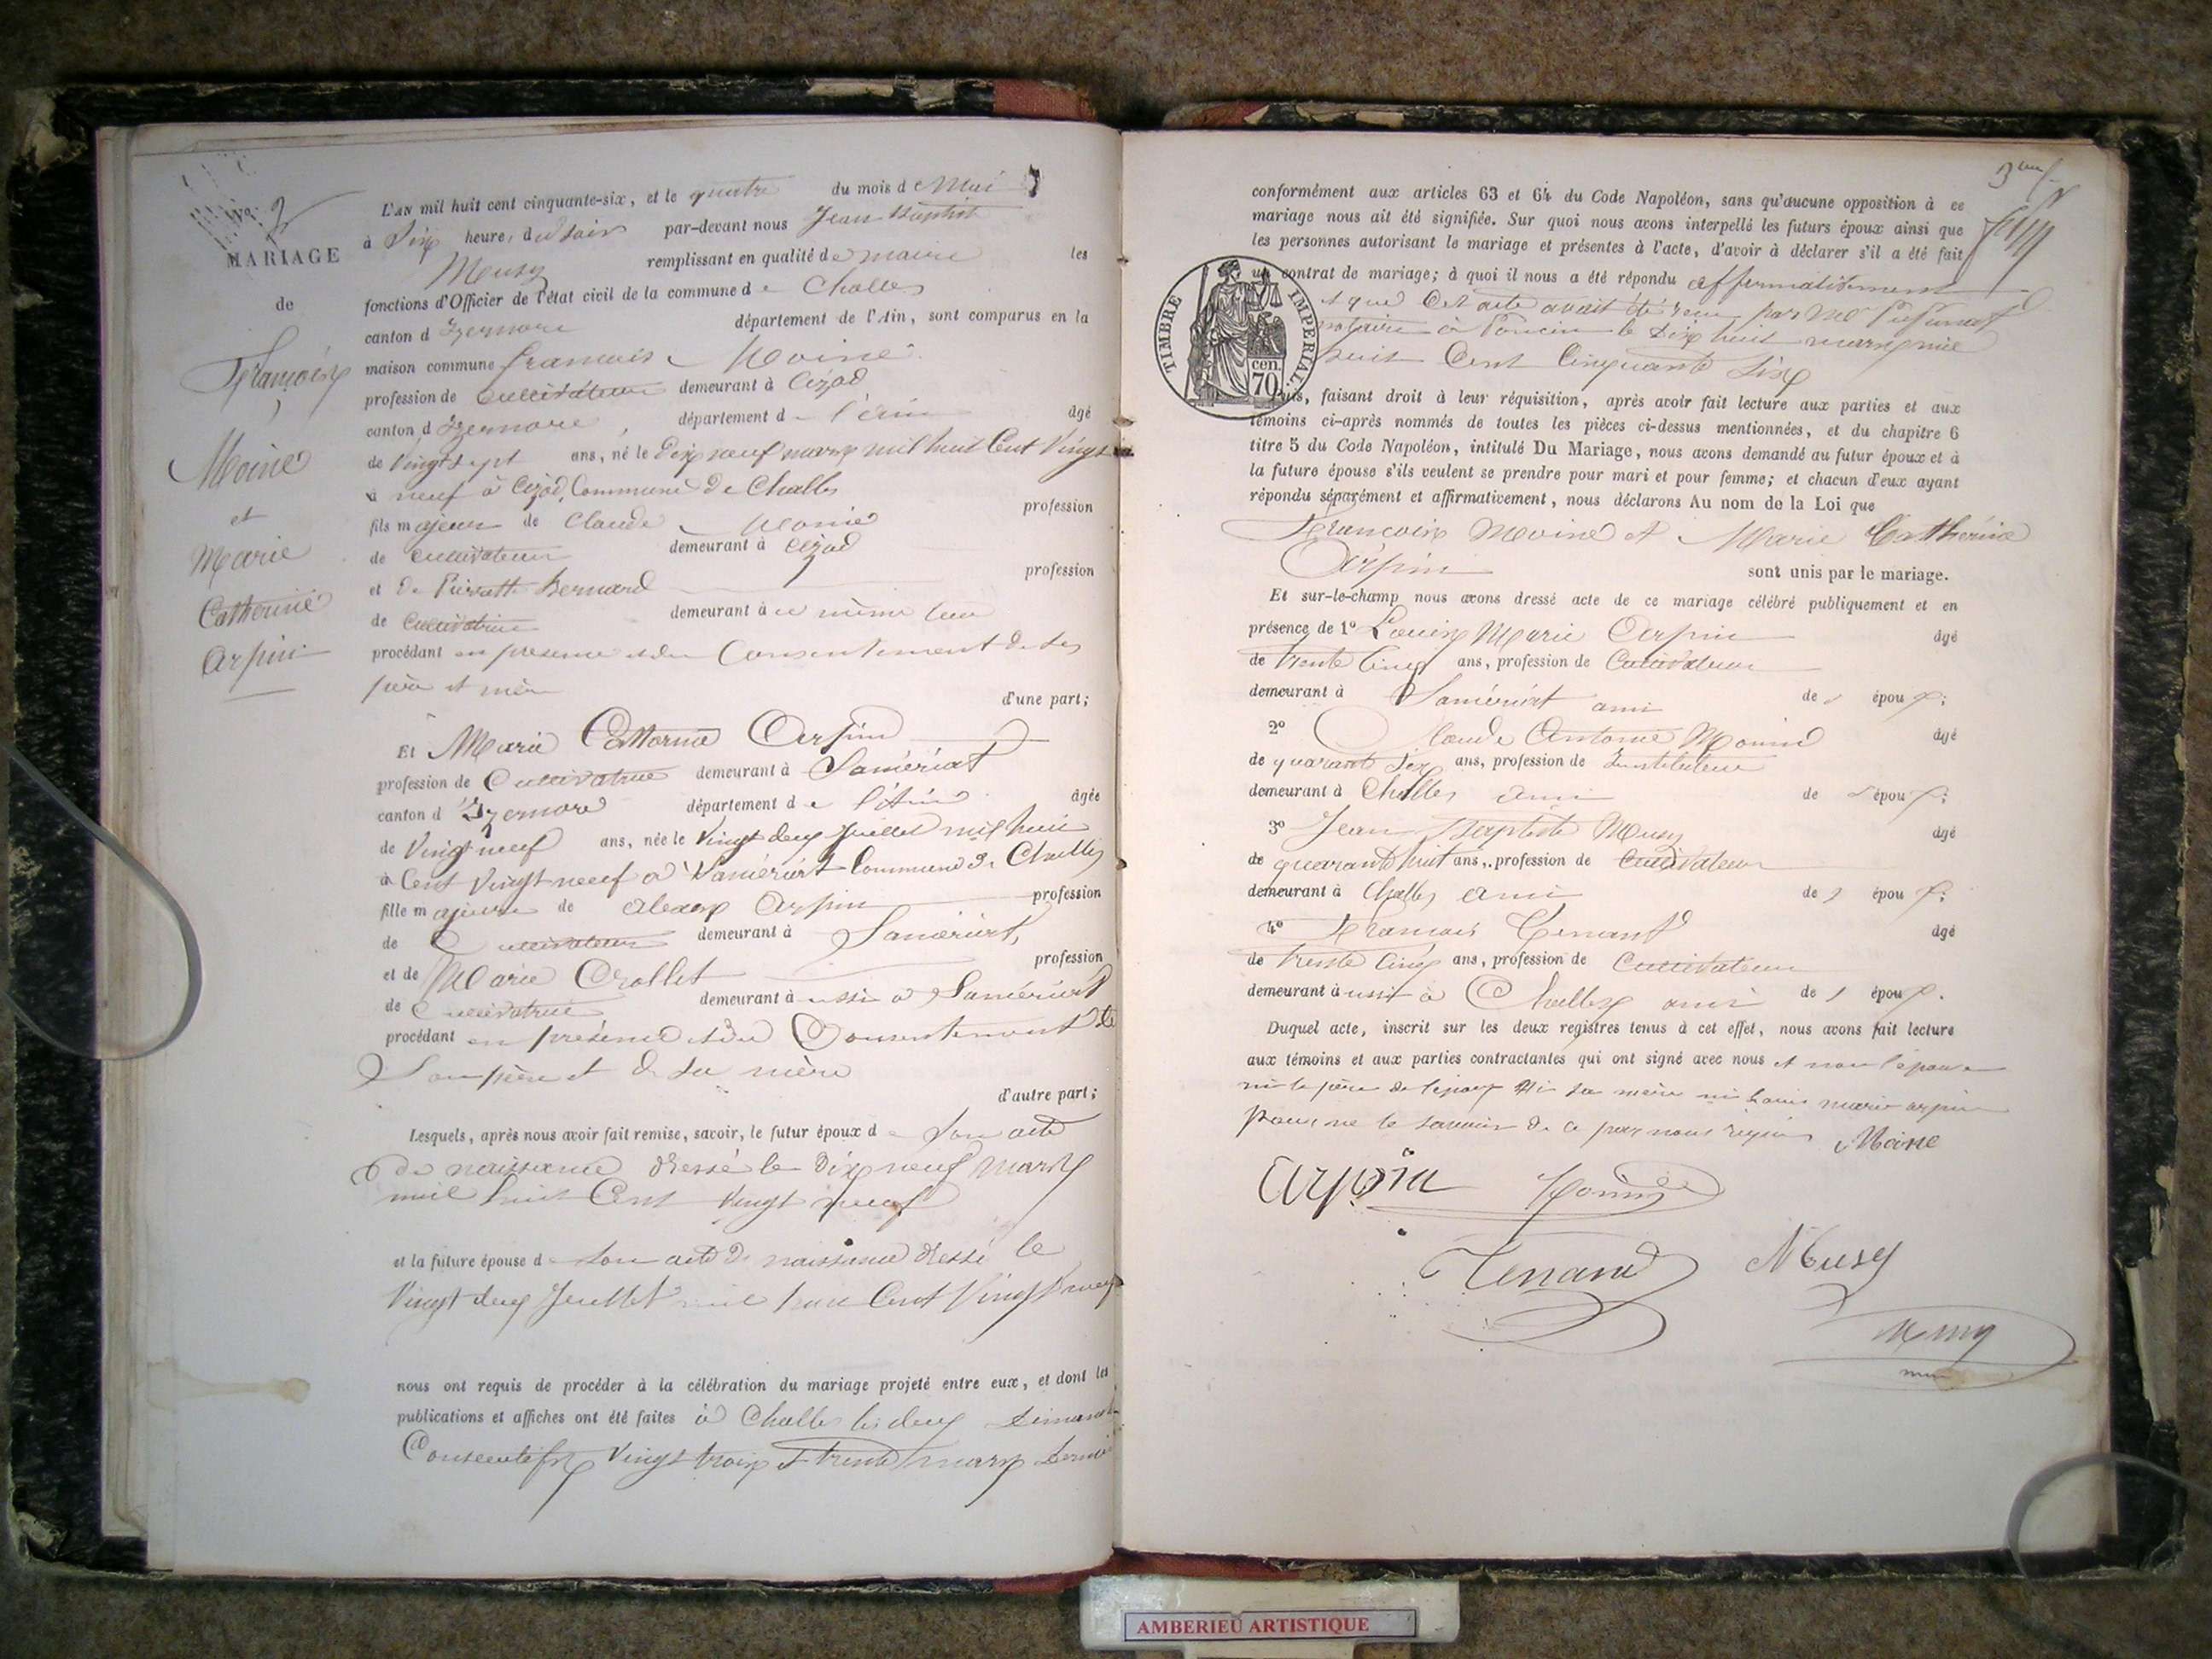 No. 2
MARIAGE
de
François
Moine
et
Marie
Catherine
Arpin
L'AN mil huit cent cinquante-six, et le quatre du mois de Mai
à Six heure, du soir par-devant nous Jean Baptiste
Musy remplissant en qualité de maire les
fonctions d'Officier de l'état civil de la commune de Challes
canton d'Izernore département de l'Ain, sont comparus en la
maison commune francois Moine
profession de Cultivateur demeurant à Cizod
canton d'Izernore, département de l'Ain âgé
de Vingt sept ans, né le Dix neuf mars mil huit Cent Vingt
à neuf à Cizod, Commune de Challes
fils majeur de Claude Moine profession
de Cultivateur demeurant à Cizod
et de Pierrette Bernard profession
de Cultivatrice demeurant à ce même lieu
procédant en présence et du Consentement de ses
père et mère
d'une part;
Et Marie Catherine Arpin
profession de Cultivatrice demeurant à Samériat
canton d'Izernore département de l'Ain âgée
de Vingt neuf ans, née le Vingt deux Juillet mil huit
à Cent Vingt neuf à Samériat Commune de Challes
fille majeure de Arpin profession
de Cultivateur demeurant à Samériat,
et de Marie Crollet profession
de Cultivatrice demeurant à aussi à Samériat
procédant en présence et du Consentement de
Son père et de sa mère
d'autre part;
Lesquels, après nous avoir fait remise, savoir, le futur époux de Son acte
de naissance dressé le Dix neuf mars
mil huit Cent Vingt neuf
et la future épouse de Son acte de naissance dressé le
Vingt deux Juillet mil huit Cent Vingt neuf
nous ont requis de procéder à la célébration du mariage projeté entre eux, et dont les
publications et affiches ont été faites à Challes les deux Dimanches
Consécutifs Vingt trois et trente mars dernier
conformément aux articles 63 et 64 du Code Napoléon, sans qu'aucune opposition à ce
mariage nous ait été signifiée. Sur quoi nous avons interpellé les futurs époux ainsi que
les personnes autorisant le mariage et présentes à l'acte, d'avoir à déclarer s'il a été fait
un contrat de mariage; à quoi il nous a été répondu affirmativement
et que Cet acte avait été reçu par Me
notaire à Poncin le Dix huit mars mil
huit Cent Cinquante Six
TIMBRE IMPERIAL.
cen.
70
Puis, faisant droit à leur réquisition, après avoir fait lecture aux parties et aux
témoins ci-après nommés de toutes les pièces ci-dessus mentionnées, et du chapitre 6
titre 5 du Code Napoléon, intitulé Du Mariage, nous avons demandé au futur époux et à
la future épouse s'ils veulent se prendre pour mari et pour femme; et chacun d'eux ayant
répondu séparément et affirmativement, nous déclarons Au nom de la Loi que
François Moine et Marie Catherine
Arpin sont unis par le mariage.
Et sur-le-champ nous avons dressé acte de ce mariage célébré publiquement et en
présence de 1° Louis Marie Arpin âgé
de trente Cinq ans, profession de Cultivateur
demeurant à Samériat ami des époux;
2° Claude Antoine Moine âgé
de quarante Six ans, profession de Instituteur
demeurant à Challes ami des époux;
3° Jean Baptiste Musy âgé
de quarante huit ans, profession de Cultivateur
demeurant à Challes ami des époux;
4° François Tenand âgé
de trente Cinq ans, profession de Cultivateur
demeurant aussi à Challes ami des époux.
Duquel acte, inscrit sur les deux registres tenus à cet effet, nous avons fait lecture
aux témoins et aux parties contractantes qui ont signé avec nous et non l'épouse
ni le père de l'époux ni sa mère ni Louis marie arpin
pour ne le savoir de ce par nous requis Moine
arpin Moine
Tenand Musy
Musy
AMBERIEU ARTISTIQUE